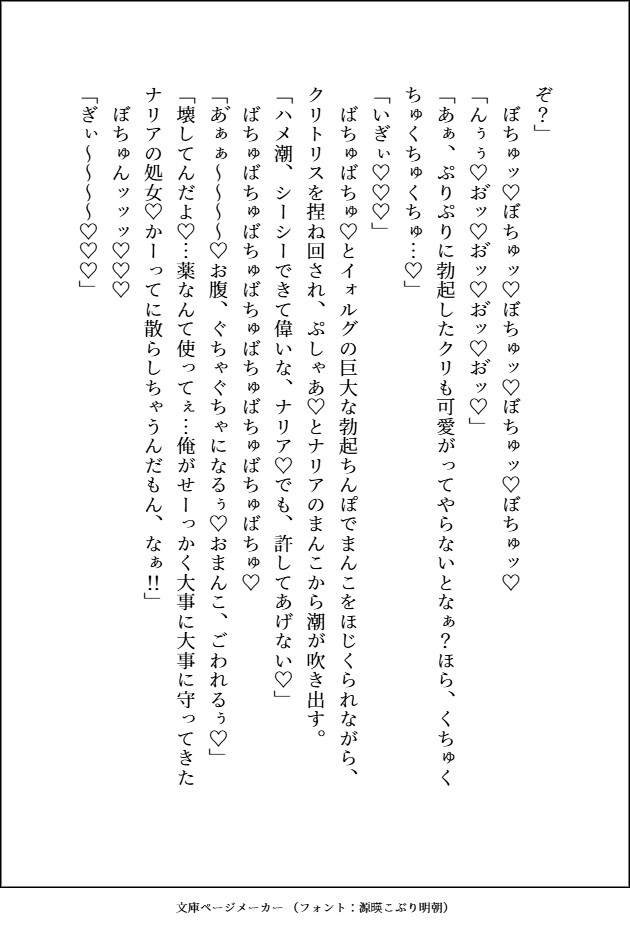 ぞ？」
　ぼちゅッ♡ぼちゅッ♡ぼちゅッ♡ぼちゅッ♡ぼちゅッ♡
「んぅぅ♡お゛ッ♡お゛ッ♡お゛ッ♡お゛ッ♡」
「あぁ、ぷりぷりに勃起したクリも可愛がってやらないとなぁ？ほら、くちゅく
ちゅくちゅくちゅ…♡」
「いぎぃ♡♡♡」
　ばちゅばちゅ♡とイォルグの巨大な勃起ちんぽでまんこをほじくられながら、
クリトリスを捏ね回され、ぷしゃあ♡とナリアのまんこから潮が吹き出す。
「ハメ潮、シーシーできて偉いな、ナリア♡でも、許してあげない♡」
　ばちゅばちゅばちゅばちゅばちゅばちゅばちゅばちゅ♡
「あ゛ぁぁ〜〜〜〜♡お腹、ぐちゃぐちゃになるぅ♡おまんこ、ごわれるぅ♡」
「壊してんだよ♡…薬なんて使ってぇ…俺がせーっかく大事に大事に守ってきた
ナリアの処女♡かーってに散らしちゃうんだもん、なぁ!!」
　ぼちゅんッッッ♡♡♡
「ぎぃ〜〜〜〜♡♡♡」
文庫ページメーカー （フォント：源暎こぶり明朝）